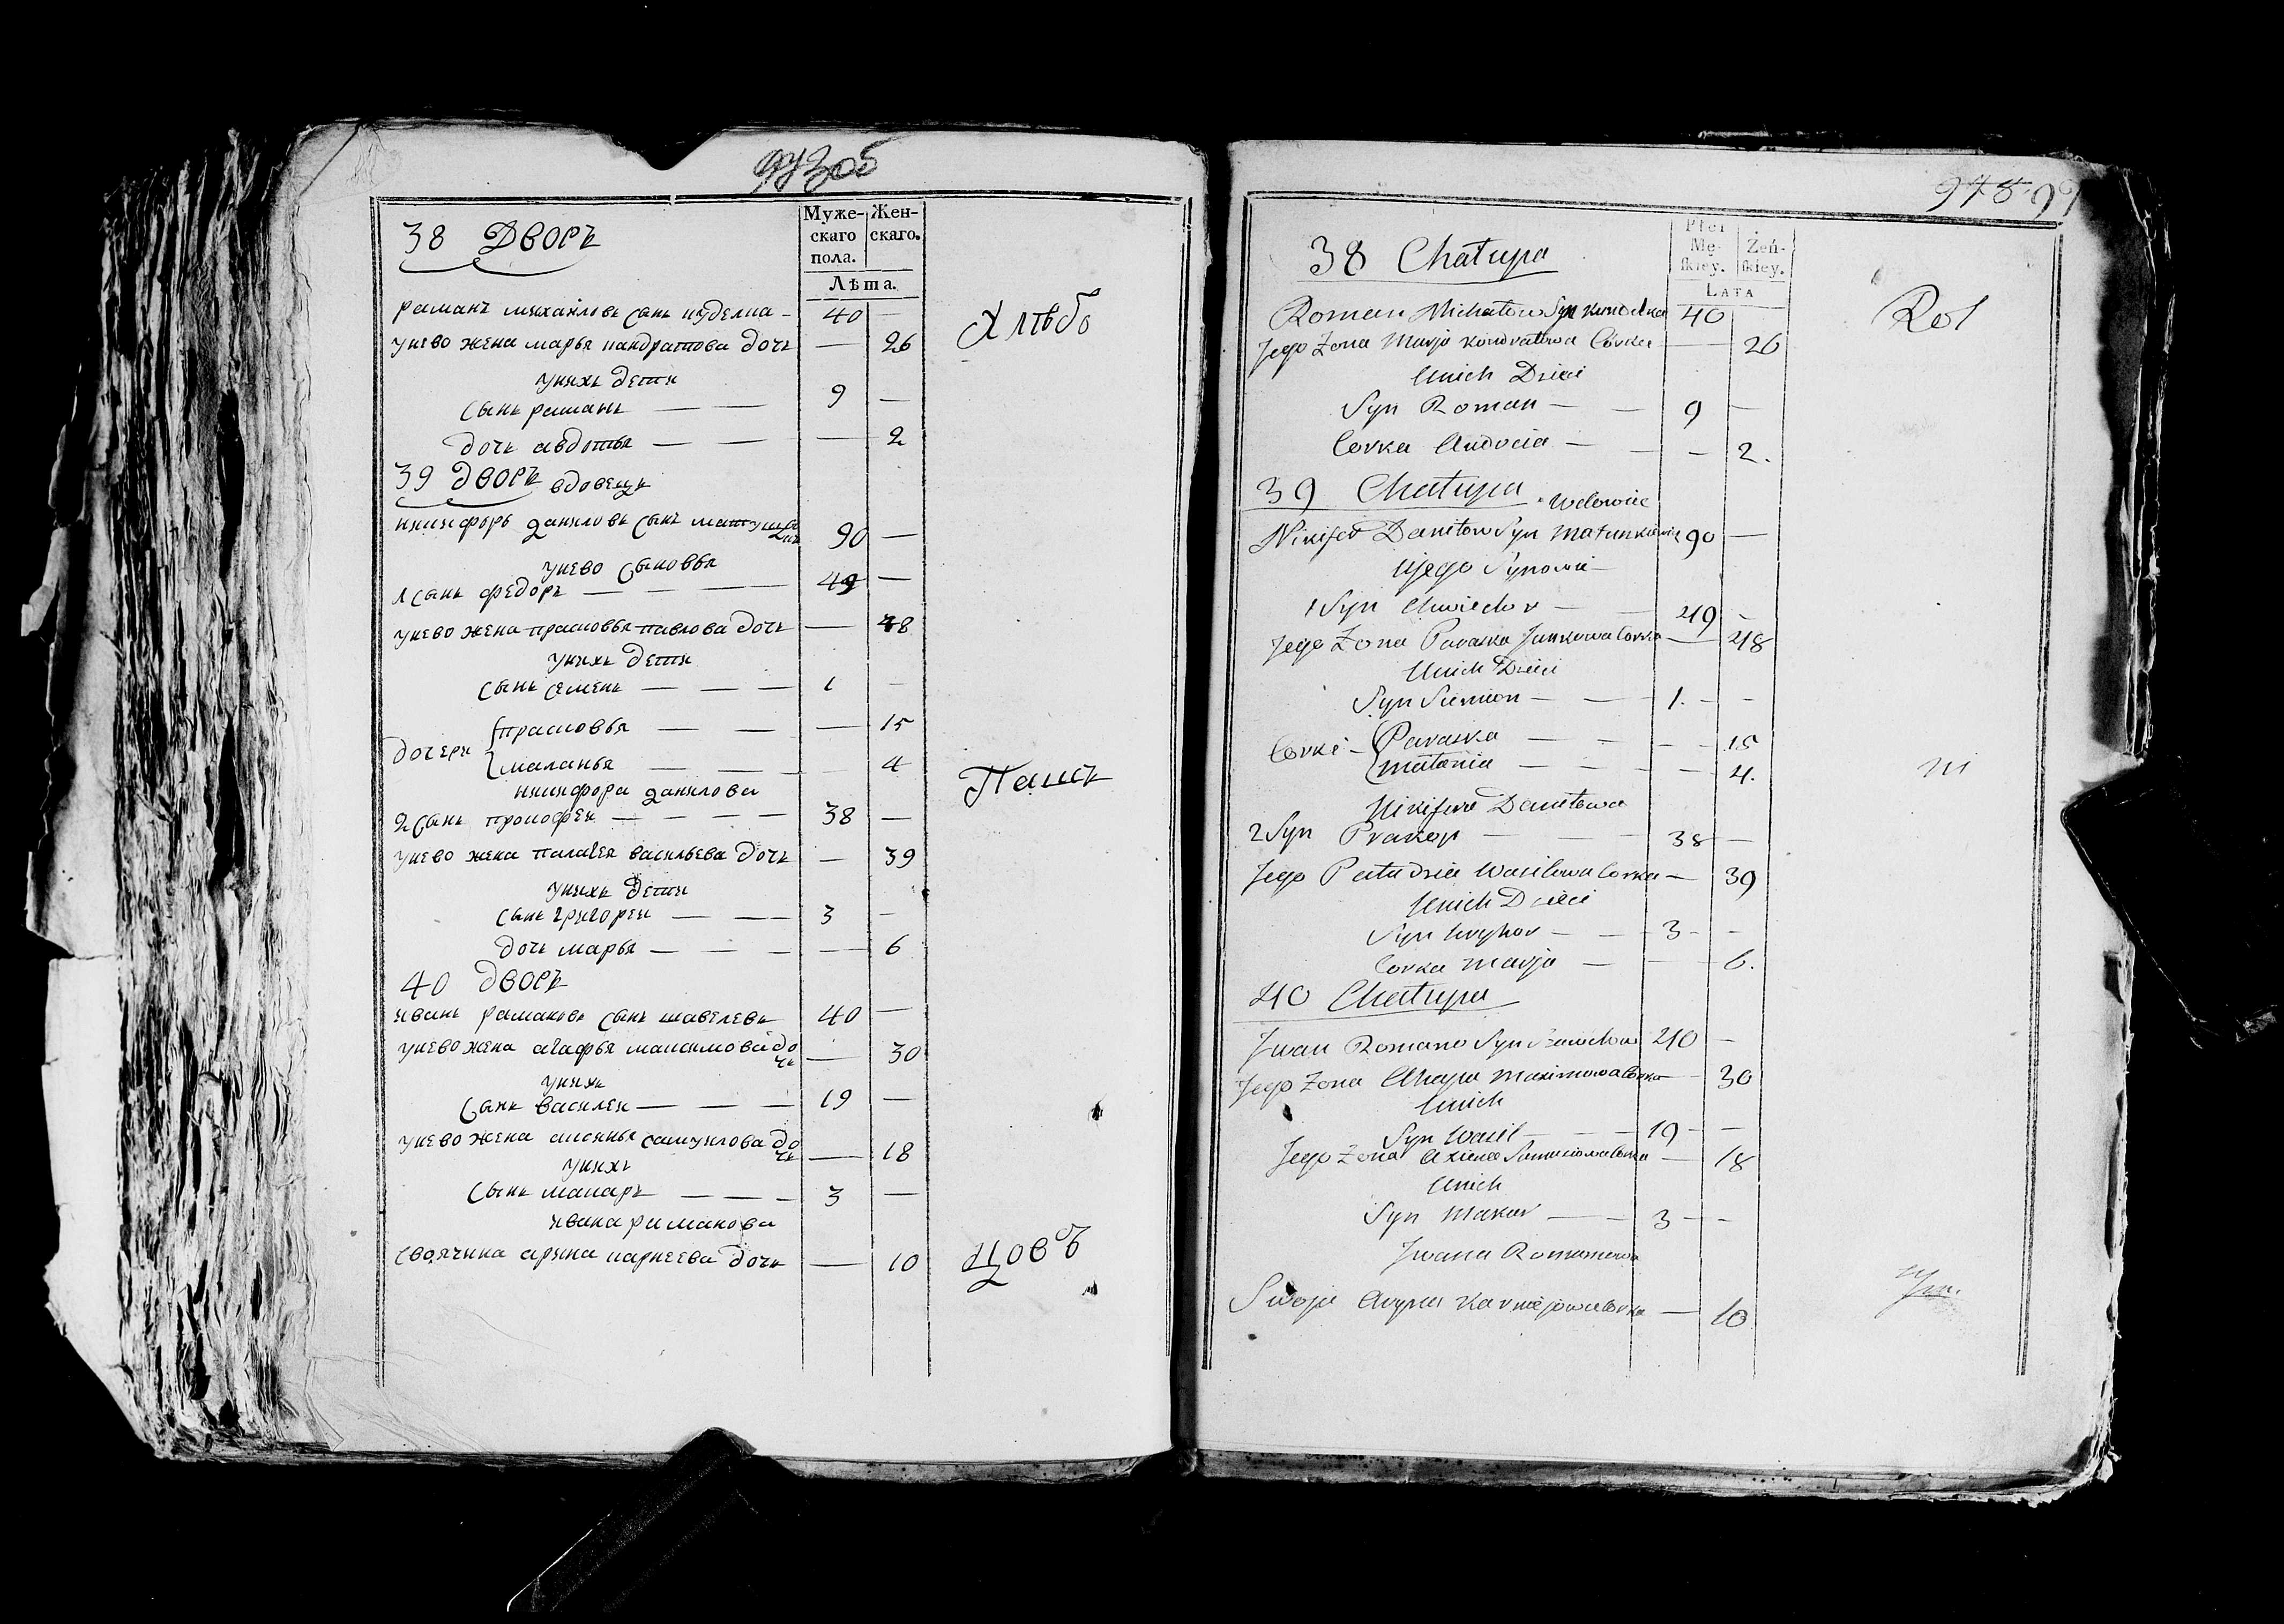 38 Дворъ
Муже-
скаго
пола.
Жен-
скаго.
Лѣта.
раманъ михаиловъ сынъ 40 —
унево жена марья кандратова дочь — 26
унихъ дети
сынъ раманъ — — 9 —
дочь авдотья — — — 2
39 дворъ вдовецъ
никифоръ даниловъ сынъ 90 —
унево сыновья
1 сынъ федоръ — — — 49 —
унево жена прасковья павлова дочь — 48
унихъ дети
сынъ семенъ — — — 1 —
дочери
прасковья — — — 15
маланья — — — 4
никифора данилова
2 сынъ прокофеи — — — — 38 —
унево жена палагея васильева дочь — 39
унихъ дети
сынъ григореи — — — 3 —
дочь марья — — — — 6
40 дворъ
иванъ рамановъ сынъ шавелевъ 40 —
унево жена агафья максимова дочь — 30
унихъ
сынъ василеи — — — 19 —
унево жена аксинья самуилова дочь — 18
унихъ
сынъ макаръ — — — 3 —
ивана раманова
своячина арина карнеева дочь — 10
Хлѣбо
Паше
цовъ
38 Chatupa
Płci
Mę-
ſkiey.
Żeń-
ſkiey.
LATA
Roman Michałow Syn 40
Jego Zona Marja Kondratowa Corka — 26
Unich Dzieci
Syn Roman — — 9 —
Corka Audocia — — — 2.
39 Chatupa Wdowiec
Nikifor Daniłow Syn 90 —
Ujego Synowie
1 Syn Chwiedor — — 49 —
Jego Zona Paraska Corka — 48
Unich Dzieci
Syn Siemion — — — 1. — —
Corki —
Paraska — — — — 15
Matania — — — — 4.
Nikifora Daniłowa
2 Syn Prakop — — — 38 —
Jego Wasilewa Corka — 39
Unich Dzieci
Syn Hryhor — — 3 — —
Corka Marja — — — 6.
40 Chatupa
Iwan Romano Syn 40 —
Jego Zona Ahapa Maximowa Corka — 30
Unich
Syn Wasil — — 19 — —
Jego Zona Axiena Corka — 18
Unich
Syn Makar — — 3 — —
Iwana Romanowa
Swoja Aryna Karniejowa Corka — 10
Rol
ni